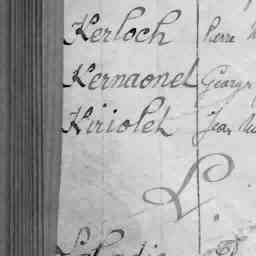 Kerloch Pierre
Kernaonet George
Kiriolet Jean
L.